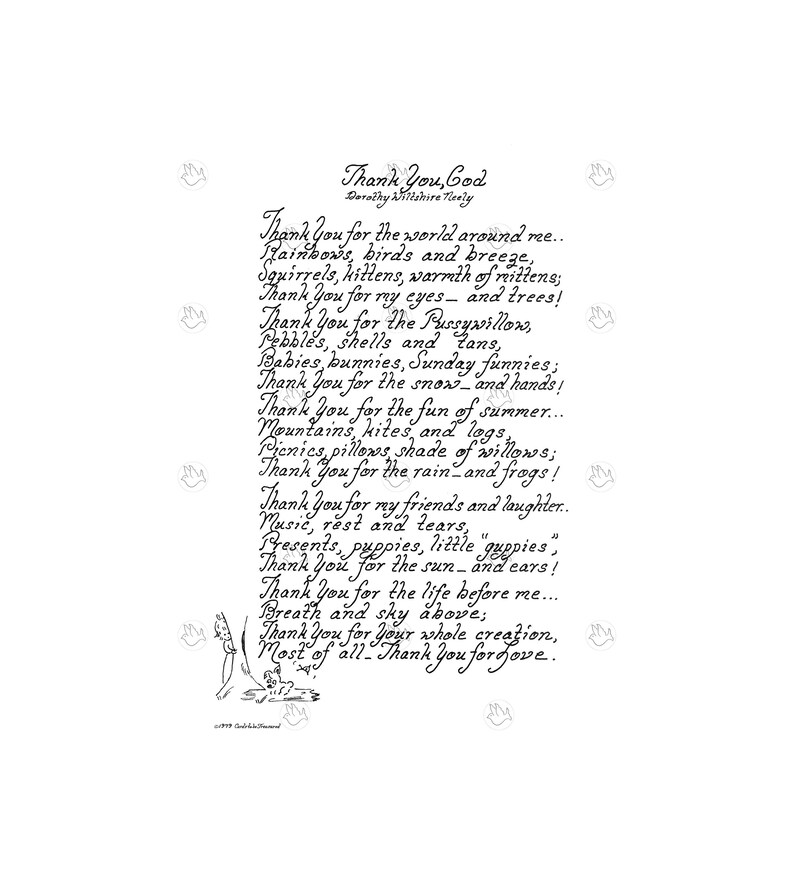 Thank You, God
Dorothy Wiltshire Neely
Thank You for the world around me..
Rainbows, birds and breeze,
Squirrels, kittens, warmth of mittens;
Thank You for my eyes_ and trees!
Thank You for the Pussywillow,
Pebbles, shells and tans,
Babies, bunnies, Sunday funnies;
Thank You for the snow_ and hands!
Thank You for the fun of summer...
Mountains, kites and logs,
Picnics, pillows, shade of willows;
Thank You for the rain_ and frogs!
Thank You for my friends and laughter..
Music, rest and tears,
Presents, puppies, little "guppies",
Thank You for the sun_ and ears!
Thank You for the life before me...
Breath and sky above;
Thank You for Your whole creation,
Most of all_ Thank You for Love.
©1979 Cards to be Treasured